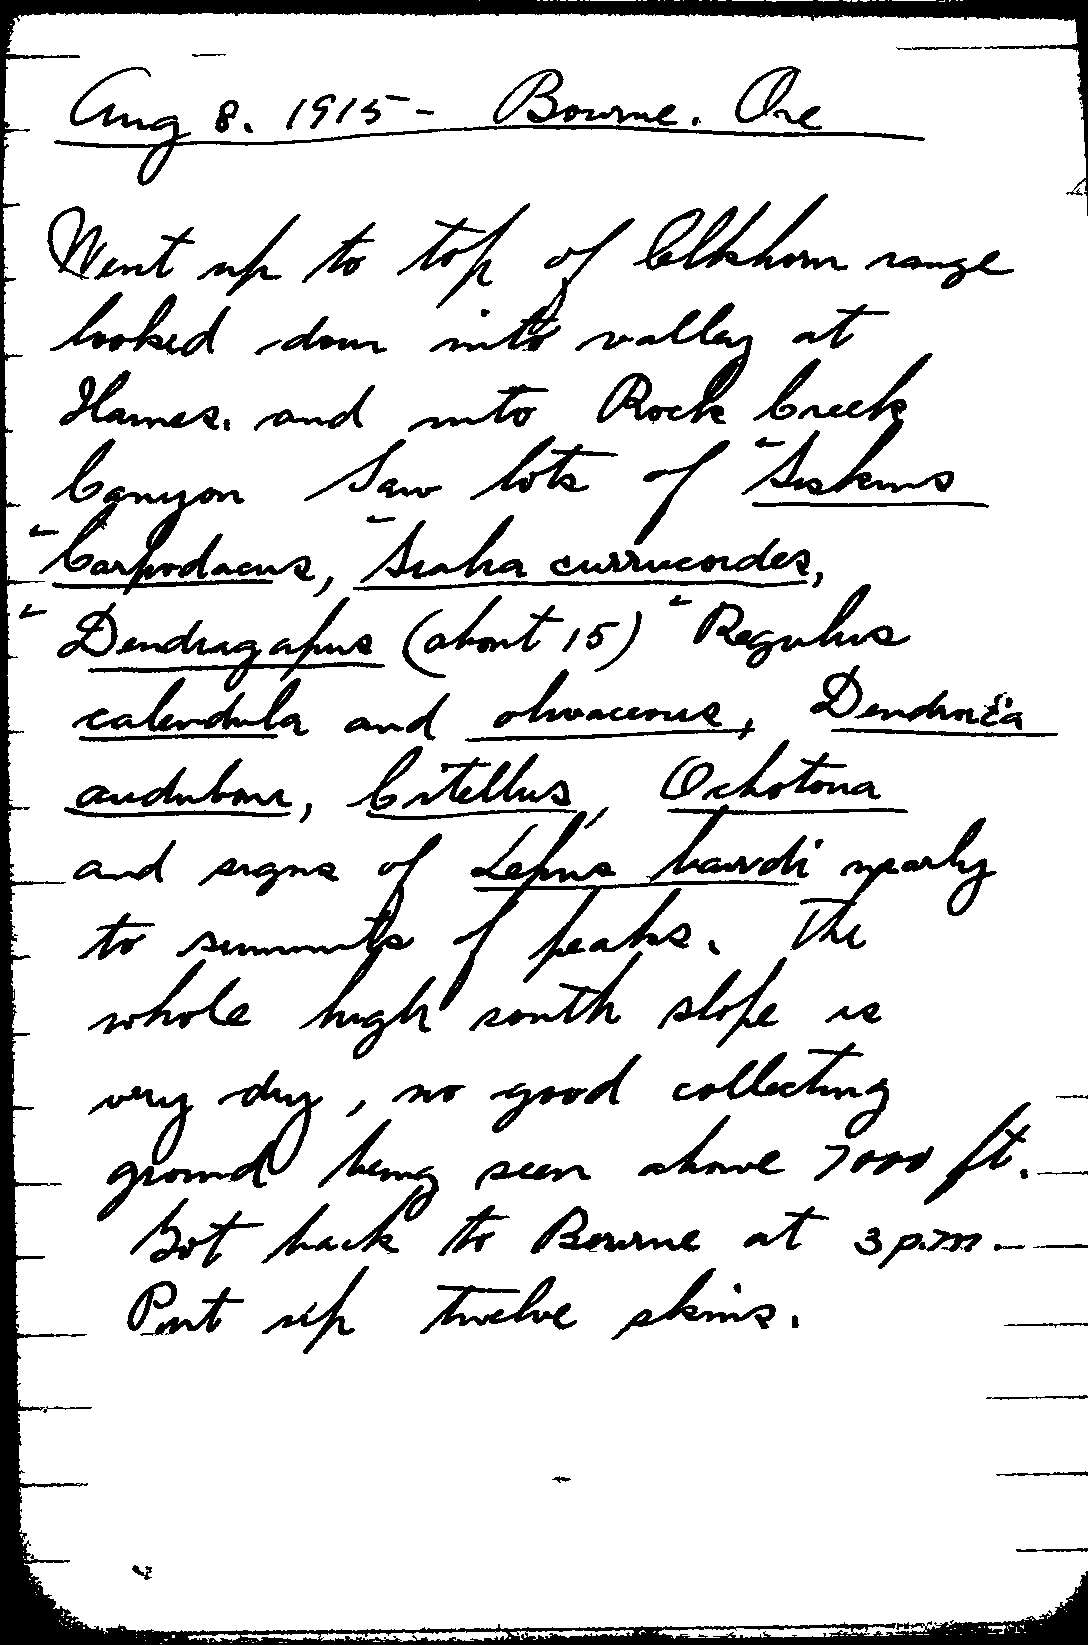 Aug 8. 1915 - Bourne. Ore
Went up to top of Elkhorn range
looked down into valley at
Haines. and into Rock Creek
Canyon Saw lots of Siskins
Carpodacus, Sialia currucoides,
Dendragapus (about 15) Regulus
calendula and olivaceous, Dendroica
auduboni, Citellus, Ochotona
and signs of Lepus bairdi nearly
to summits of peaks. The
whole high south slope is
very dry, no good collecting
ground being seen above 7000 ft.
Got back to Bourne at 3 p.m.
Put up twelve skins.